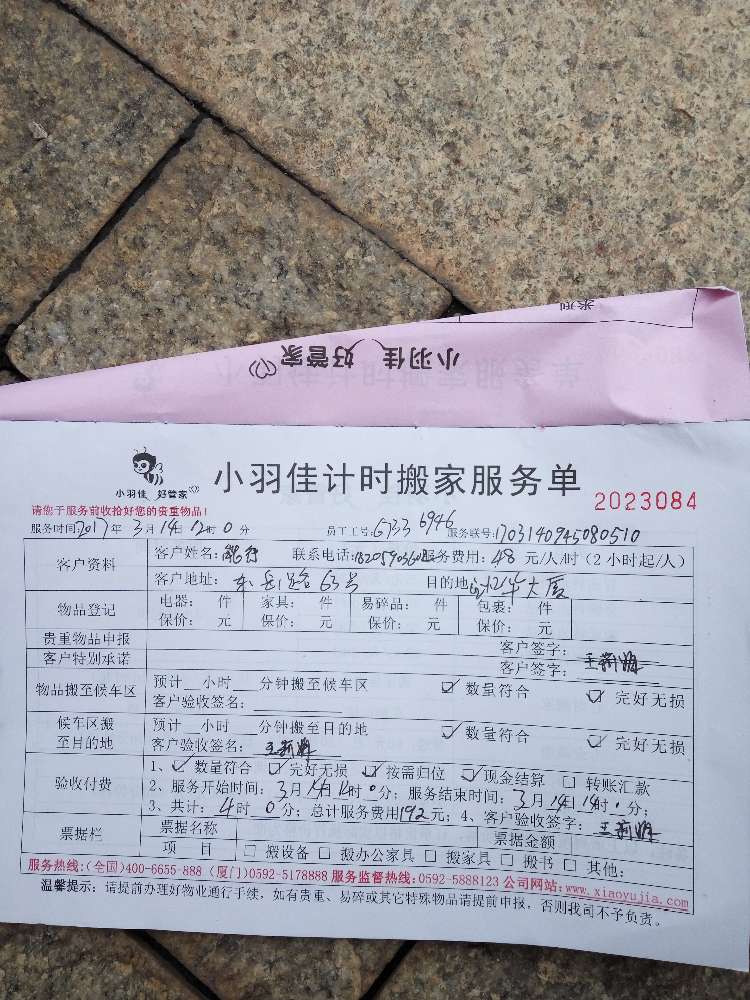 类型
小羽佳 好管家
小羽佳 好管家
小羽佳计时搬家服务单
2023084
请您于服务前收拾好您的贵重物品!
服务时间2017年3月14日12时0分 员工工号:6733 6946 服务联号:170314094508051 0
客户资料
客户姓名: 联系电话: 服务费用:48元/人/时(2小时起/人)
客户地址: 东岳路63号 目的地: 大厦
物品登记
电器: 件 家具: 件 易碎品: 件 包裹: 件
保价: 元 保价: 元 保价: 元 保价: 元
贵重物品申报 客户签字:
客户特别承诺 客户签字:
物品搬至候车区
预计 小时 分钟搬至候车区 ☑数量符合 ☑完好无损
客户验收签名:
候车区搬至目的地
预计 小时 分钟搬至目的地 ☑数量符合 ☑完好无损
客户验收签名:
验收付费
1、☑数量符合 ☑完好无损 ☑按需归位 ☑现金结算 □转账汇款
2、服务开始时间:3月14日 时0分;服务结束时间:3月14日14时0分;
3、共计:4时0分;总计服务费用192元;4、客户验收签字:
票据栏
票据名称 票据金额
项 目 □搬设备 □搬办公家具 □搬家具 □搬书 □其他:
服务热线:(全国)400-6655-888 (厦门)0592-5178888 服务监督热线:0592-5888123 公司网站:www.xiaoyujia.com
温馨提示:请提前办理好物业通行手续,如有贵重、易碎或其它特殊物品请提前申报,否则我司不予负责。